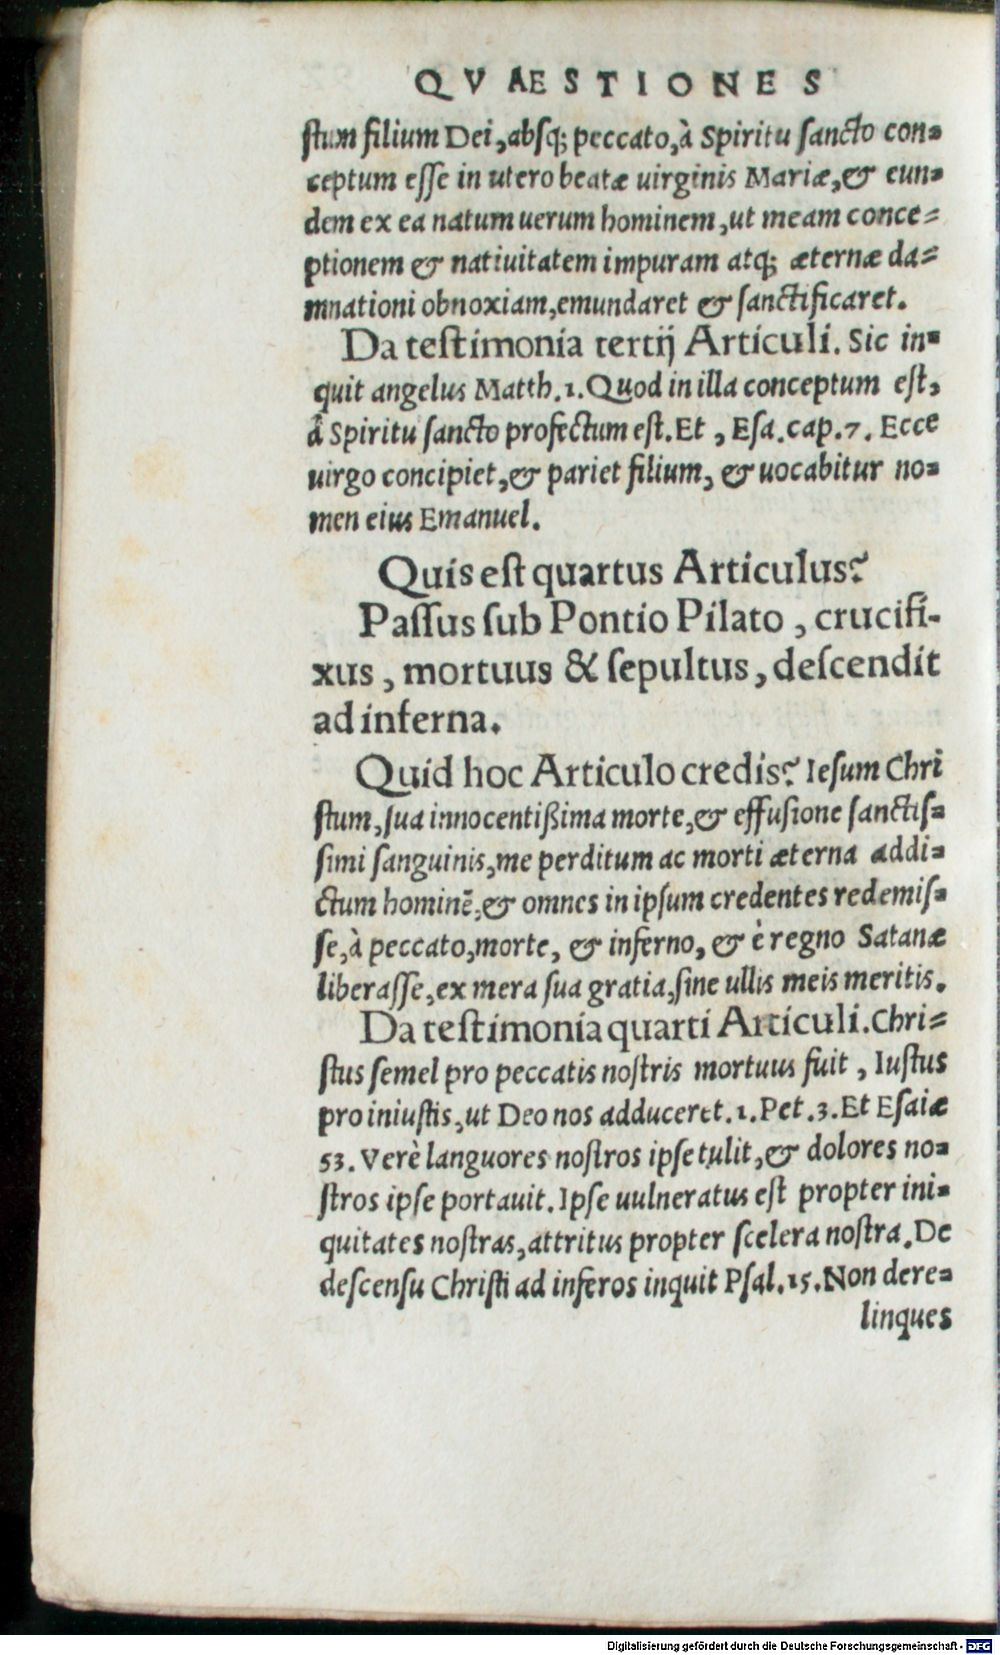 QVAESTIONES
ſtum filium Dei, absq; peccato, à Spiritu ſancto con=
ceptum eſſe in utero beatæ uirginis Mariæ, & eun=
dem ex ea natum uerum hominem, ut meam conce=
ptionem & natiuitatem impuram atq; æternæ da=
mnationi obnoxiam, emundaret & ſanctificaret.
Da teſtimonia tertij Articuli. Sic in=
quit angelus Matth. 1. Quod in illa conceptum eſt,
à Spiritu ſancto profectum eſt. Et, Eſa. cap. 7. Ecce
uirgo concipiet, & pariet filium, & uocabitur no=
men eius Emanuel.
Quis eſt quartus Articulus?
Paſſus ſub Pontio Pilato, crucifi-
xus, mortuus & ſepultus, deſcendit
ad inferna.
Quid hoc Articulo credis? Ieſum Chri
ſtum, ſua innocentißima morte, & effuſione ſanctiſ=
ſimi ſanguinis, me perditum ac morti æterna addi=
ctum hominē, & omnes in ipſum credentes redemiſ=
ſe, à peccato, morte, & inferno, & è regno Satanæ
liberaſſe, ex mera ſua gratia, ſine ullis meis meritis.
Da teſtimonia quarti Articuli. Chri=
ſtus ſemel pro peccatis noſtris mortuus fuit, Iuſtus
pro iniuſtis, ut Deo nos adduceret. 1. Pet. 3. Et Eſaiæ
53. Verè languores noſtros ipſe tulit, & dolores no=
ſtros ipſe portauit. Ipſe uulneratus eſt propter ini=
quitates noſtras, attritus propter ſcelera noſtra. De
deſcenſu Chriſti ad inferos inquit Pſal. 15. Non dere=
linques
Digitalisierung gefördert durch die Deutsche Forschungsgemeinschaft - DFG